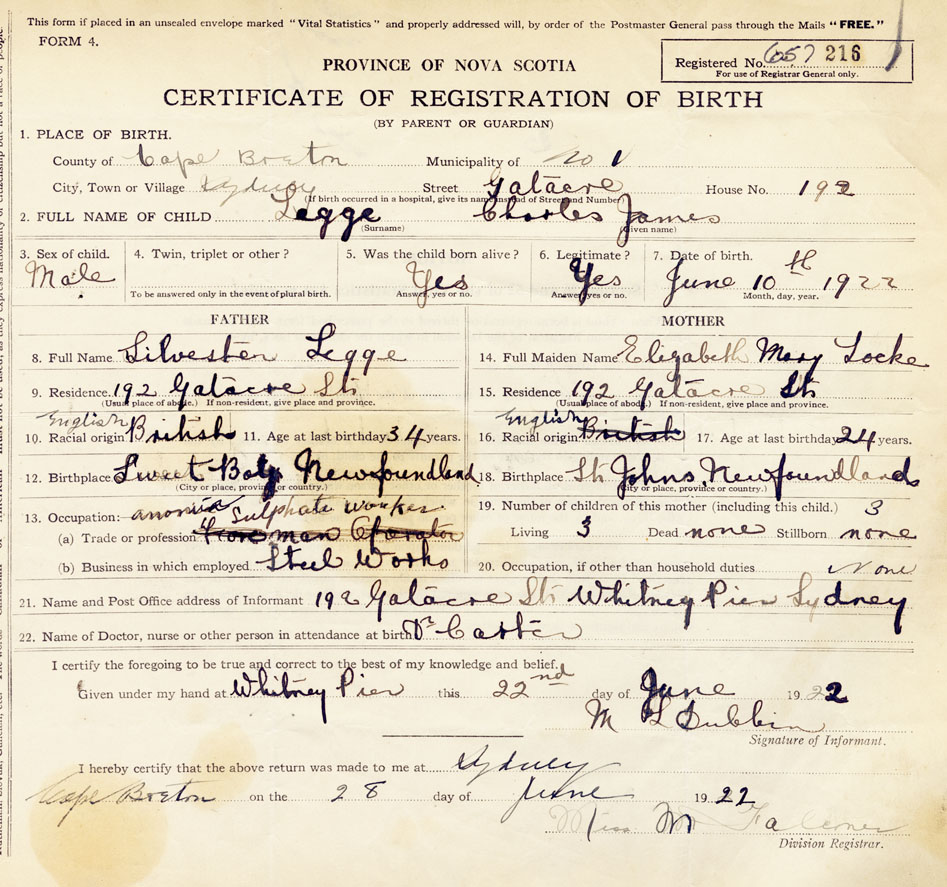 This form if placed in an unsealed envelope marked "Vital Statistics" and properly addressed will, by order of the Postmaster General pass through the Mails "FREE."
FORM 4.
Registered No. 657 216
For use of Registrar General only.
PROVINCE OF NOVA SCOTIA
CERTIFICATE OF REGISTRATION OF BIRTH
(BY PARENT OR GUARDIAN)
1. PLACE OF BIRTH.
County of Cape Breton Municipality of No 1
City, Town or Village Sydney Street Gatacre House No. 192
(If birth occurred in a hospital, give its name instead of Street and Number)
2. FULL NAME OF CHILD Legge Charles James
(Surname) (Given name)
3. Sex of child. 4. Twin, triplet or other? 5. Was the child born alive? 6. Legitimate? 7. Date of birth.
Male Yes Yes June 10th 1922
To be answered only in the event of plural birth. Answer, yes or no. Answer, yes or no. Month, day, year.
FATHER MOTHER
8. Full Name Silvester Legge 14. Full Maiden Name Elizabeth Mary Locke
9. Residence 192 Gatacre St. 15. Residence 192 Gatacre St
(Usual place of abode.) If non-resident, give place and province. (Usual place of abode.) If non-resident, give place and province.
English English
10. Racial origin British 11. Age at last birthday 34 years. 16. Racial origin British 17. Age at last birthday 24 years.
12. Birthplace Sweet Bay Newfoundland 18. Birthplace St Johns, Newfoundland
(City or place, province or country.) (City or place, province or country.)
13. Occupation: Sulphate worker 19. Number of children of this mother (including this child.) 3
(a) Trade or profession man Operator Living 3 Dead none Stillborn none
(b) Business in which employed Steel Works 20. Occupation, if other than household duties None
21. Name and Post Office address of Informant 192 Gatacre St. Whitney Pier Sydney
22. Name of Doctor, nurse or other person in attendance at birth Dr Carter
I certify the foregoing to be true and correct to the best of my knowledge and belief.
Given under my hand at Whitney Pier this 22nd day of June 1922
M L Dubbin
Signature of Informant.
I hereby certify that the above return was made to me at Sydney
Cape Breton on the 28 day of June 1922
Miss M
Division Registrar.